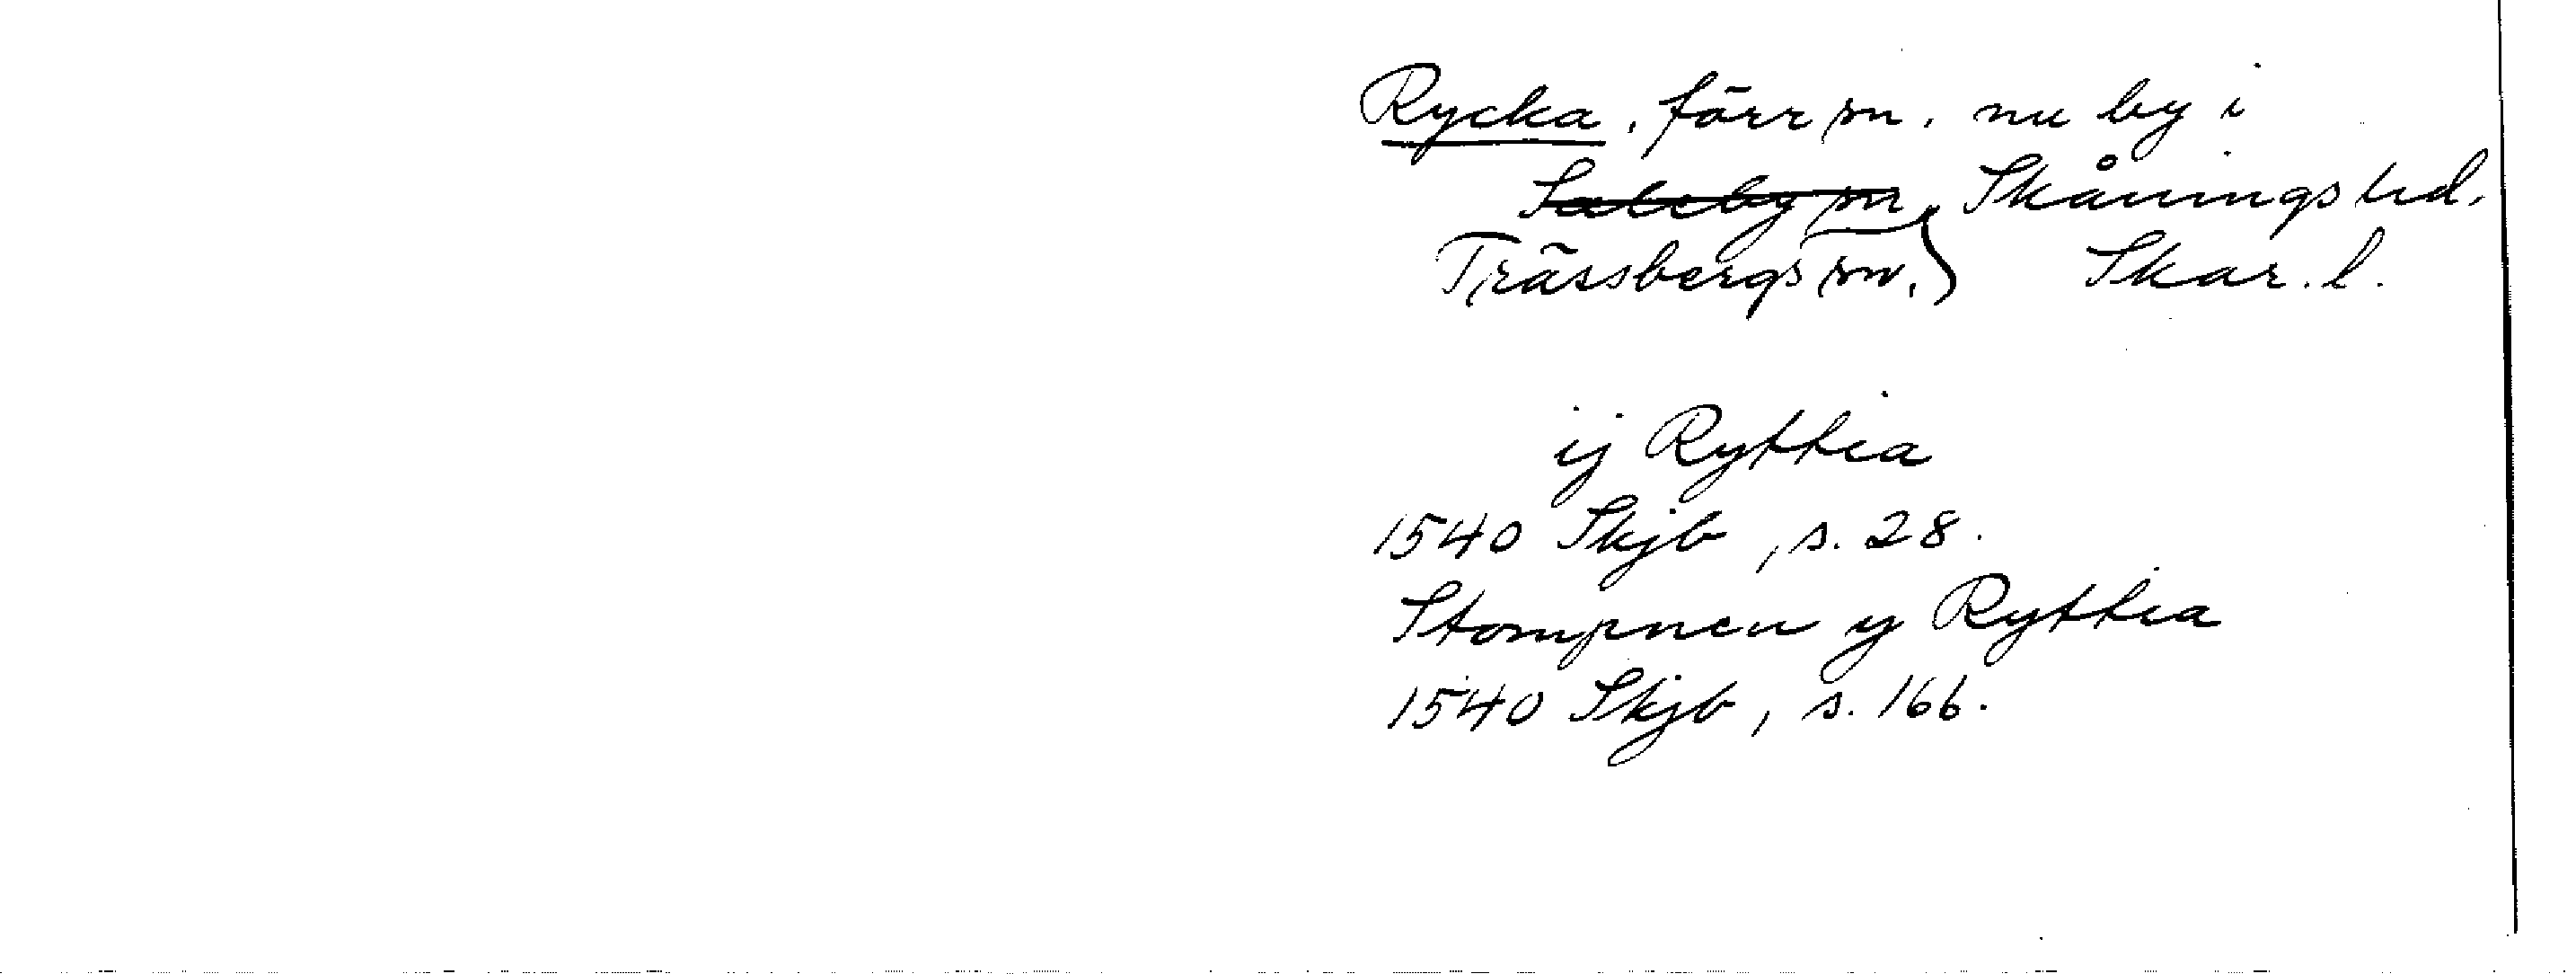 Rycka, förr sn, nu by i
Saleby sn, Skånings hd.
Trässbergs sn. Skar. l.
ij Ryttia
1540 Skjb, s. 28.
Stompnen y Ryttia
1540 Skjb, s. 166.